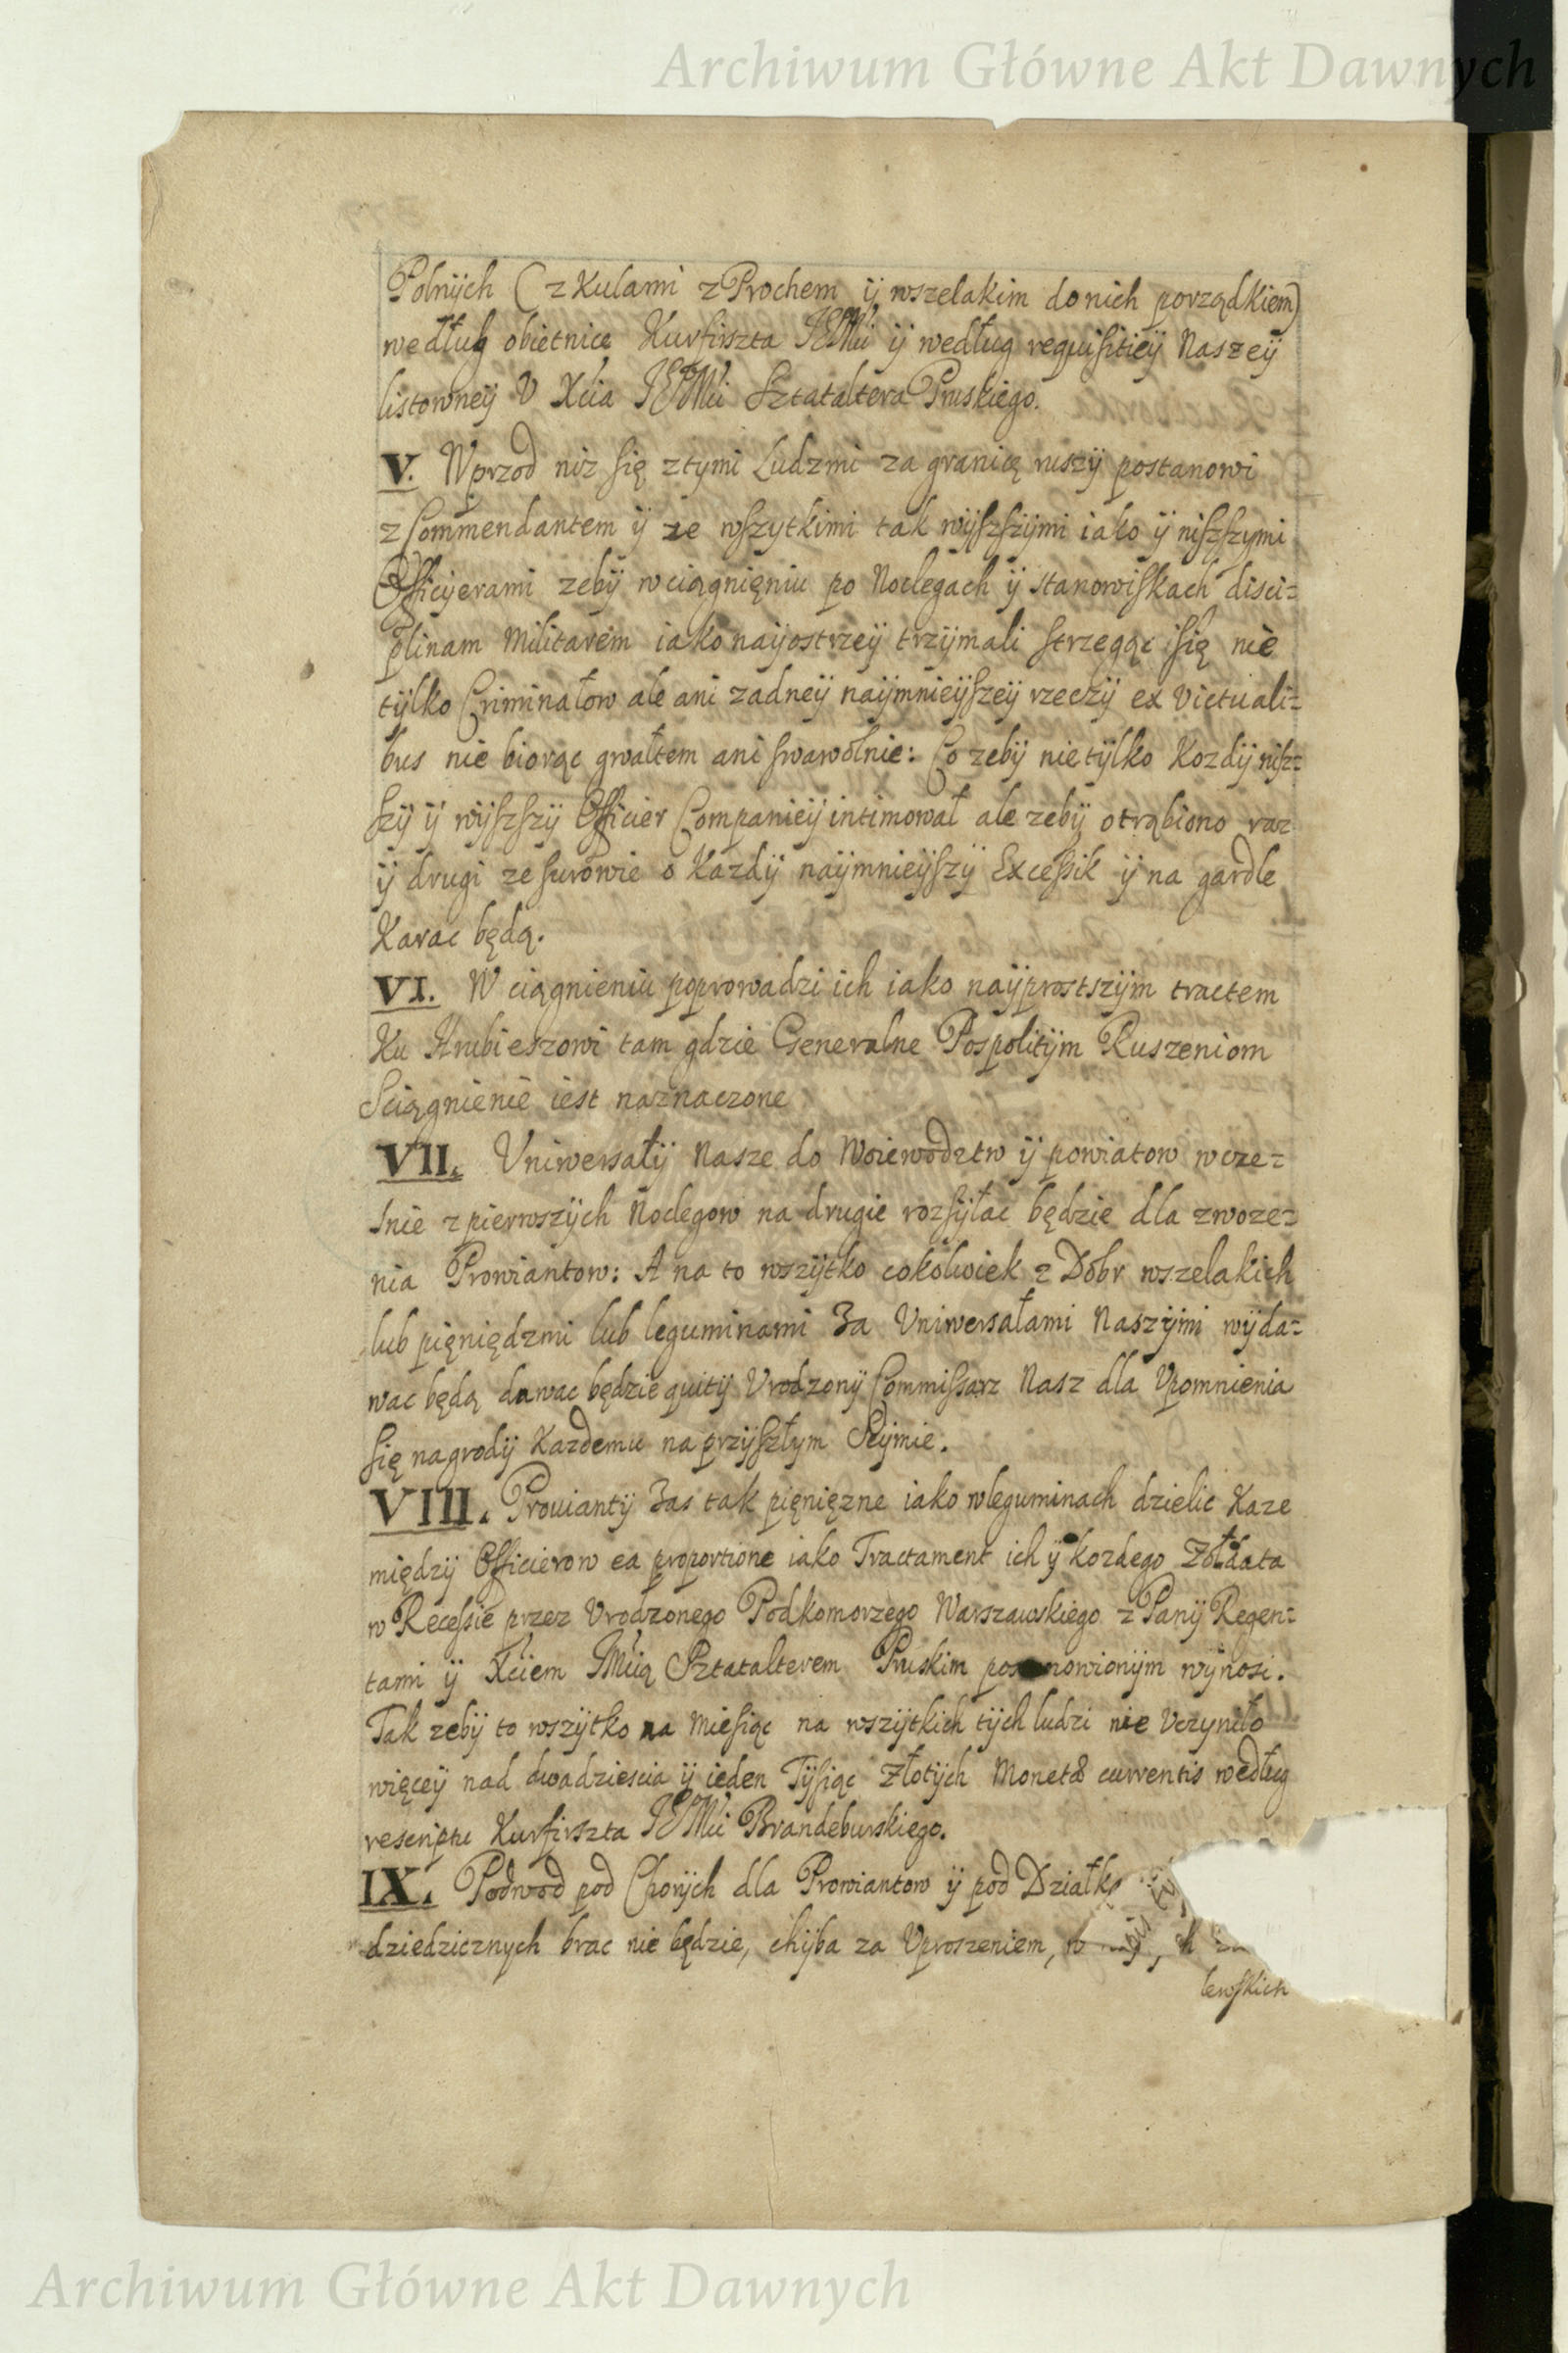 Archiwum Główne Akt Dawnych
Polnÿch (z Kulami z Prochem ÿ wszelakim do nich porządkiem)
według obietnice Kurfirszta JEoMći ÿ według requisitieÿ Naszeÿ
listowneÿ V Xcia JEoMći Sztataltera Pruskiego.
V. Wprzod niz się z tymi Ludzmi za granicę ruszÿ postanowi
z Commendantem ÿ ze wszytkimi tak wÿszszÿmi iako ÿ niszszymi
Officÿerami zebÿ w ciągnięniu po Noclegach ÿ stanowiskach disci=
plinam Militarem iako naÿostrzeÿ trzÿmali strzegąc się nie
tÿlko Criminałow ale ani zadneÿ naÿmnieÿszeÿ rzeczÿ ex victuali=
bus nie biorąc gwałtem ani swawolnie: Co zebÿ nie tÿlko Kozdÿ nisz=
szÿ ÿ wÿszszÿ Officier Companieÿ intimował ale zebÿ otrąbiono raz
ÿ drugi ze surowie o Kazdÿ naÿmnieÿszÿ Excessik ÿ na gardle
Karac będą.
VI. W ciągnieniu poprowadzi ich iako naÿprostszÿm tractem
Ku Hrubieszowi tam gdzie Generalne Pospolitÿm Ruszeniom
Sciągnienie iest naznaczone
VII. Vniwersałÿ Nasze do Woiewodztw ÿ powiatow wcze=
snie z pierwszÿch Noclegow na drugie rozsÿłac będzie dla zwoze=
nia Prowiantow: A na to wszÿtko cokolwiek z Dobr wszelakich
lub pięniędzmi lub leguminami Za Vniwersałami Naszÿmi wÿda=
wac będą dawac będzie quitÿ Vrodzonÿ Commissarz Nasz dla Vpomnienia
się nagrodÿ Kazdemu na przÿszłym Seÿmie.
VIII. Prouiantÿ Zas tak pięnięzne iako w leguminach dzielic Kaze
międzÿ Officierow ea proportione iako Tractament ich ÿ kozdego Zołdata
w Recessie przez Vrodzonego Podkomorzego Warszawskiego z Panÿ Regen=
tami ÿ Xciem JMcią Sztatalterem Pruskim postanowionÿm wÿnosi.
Tak zebÿ to wszÿtko na Miesiąc na wszÿtkich tÿch ludzi nie Vczyniło
więceÿ nad dwadziescia ÿ ieden Tÿsiąc Złotÿch Monetæ currentis według
rescriptu Kurfirszta JEoMći Brandeburskiego.
IX. Podwod pod Chorÿch dla Prowiantow ÿ pod Działk
dziedzicznych brac nie będzie, chÿba za Vproszeniem, w
lewskich
Archiwum Główne Akt Dawnych